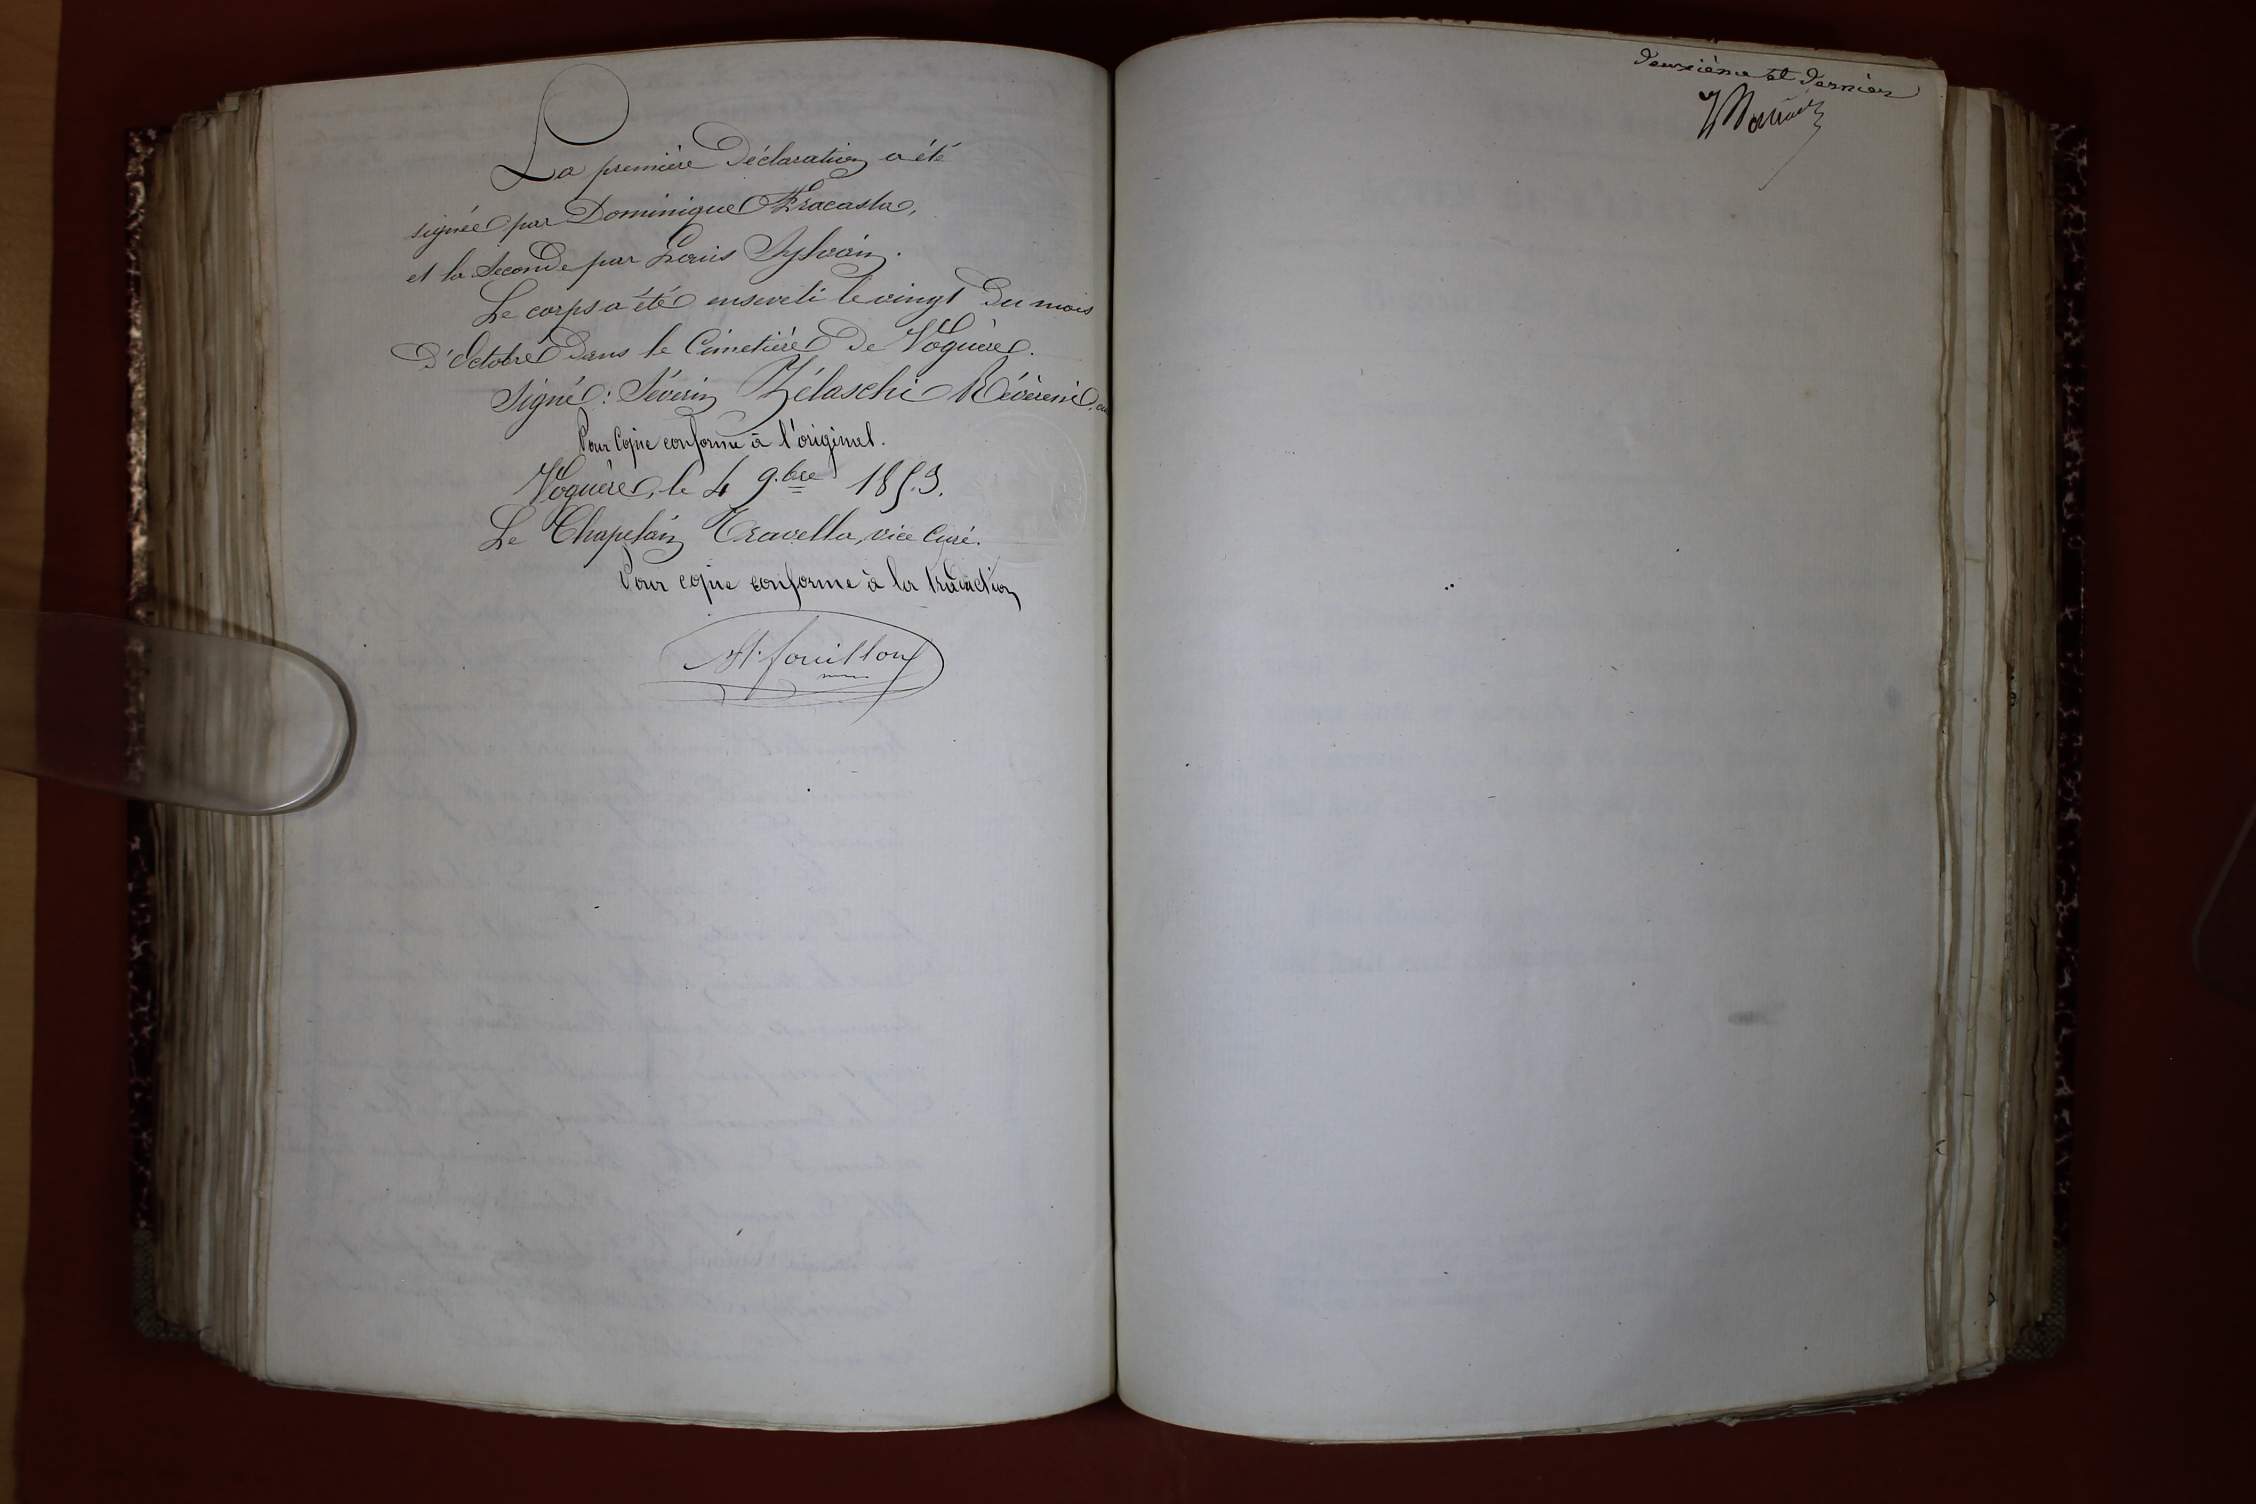 La première Déclaration a été
signée par Dominique Fracasta,
et la seconde par Louis Sylvain.
Le corps a été enseveli le vingt du mois
d'Octobre dans le Cimetière de Voguère.
Signé : Séverin Zélaschi Révérend
Pour Copie conforme à l'original.
Voguère, le 4 9.bre 1853.
Le Chapelain Travella, vice Curé.
Pour copie conforme à la traduction
fouillon
deuxième et dernier